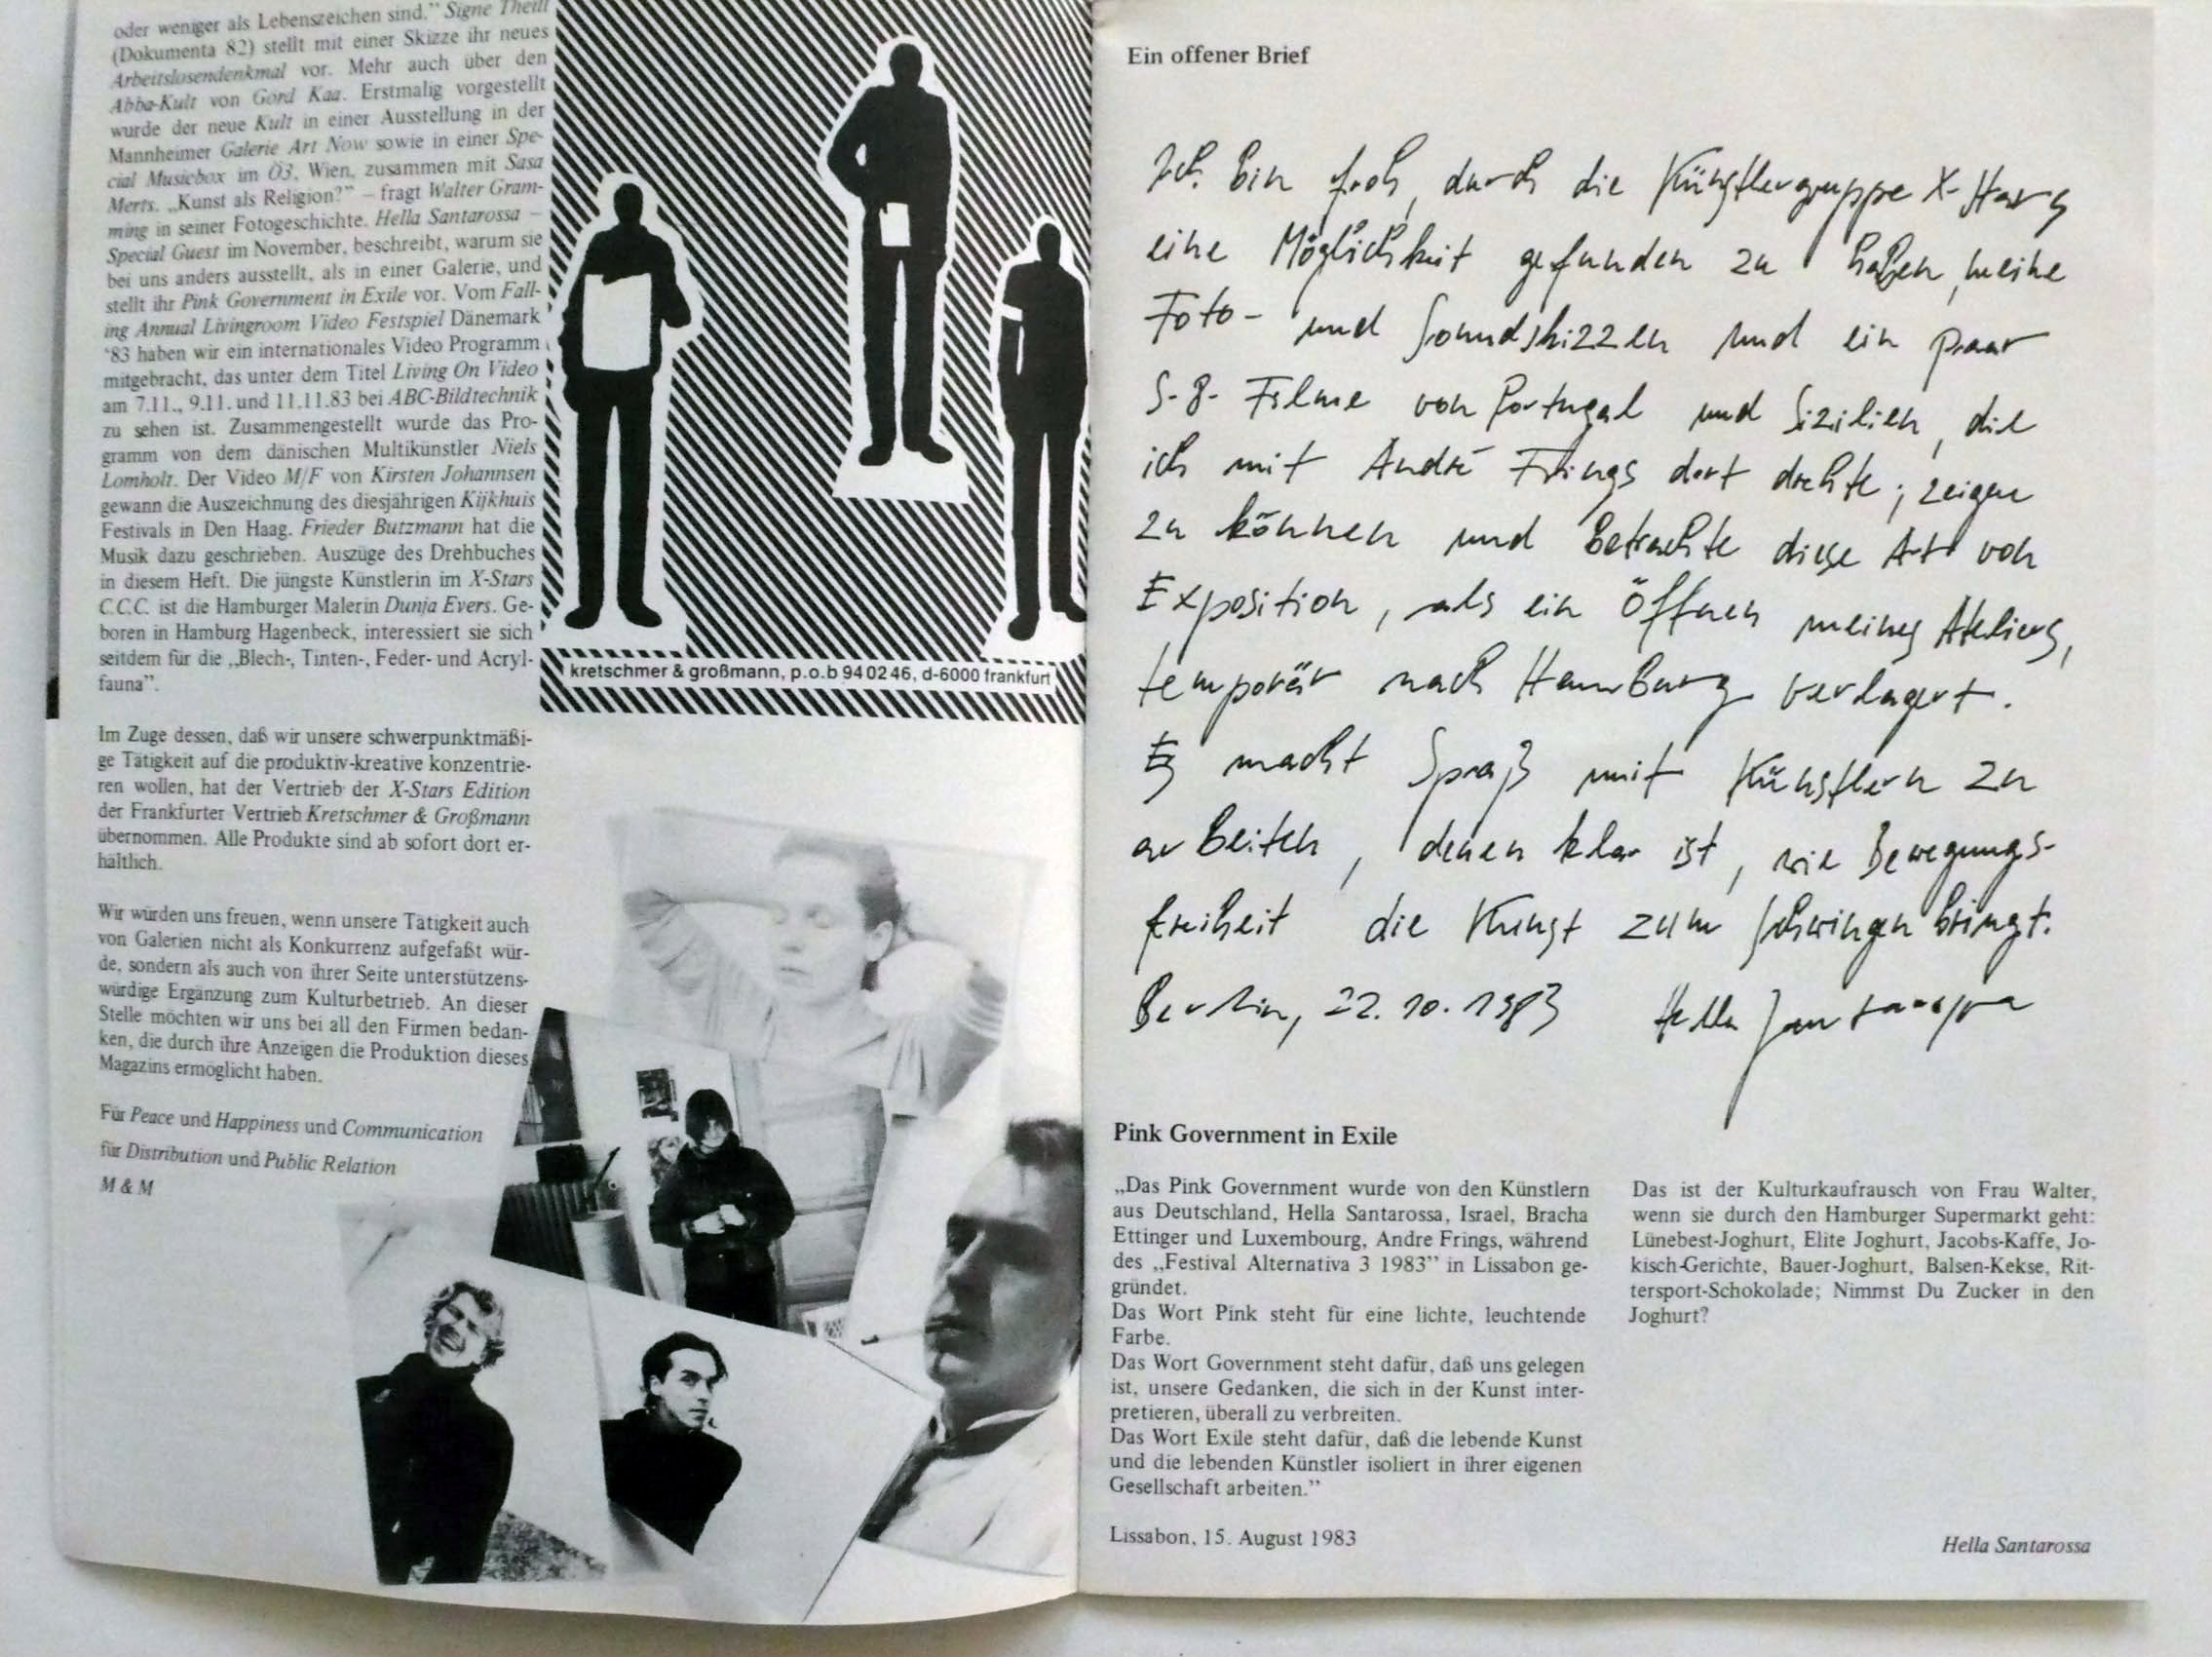 oder weniger als Lebenszeichen sind.” Signe Theill
(Dokumenta 82) stellt mit einer Skizze ihr neues
Arbeitslosendenkmal vor. Mehr auch über den
Abba-Kult von Gord Kaa. Erstmalig vorgestellt
wurde der neue Kult in einer Ausstellung in der
Mannheimer Galerie Art Now sowie in einer Spe-
cial Musicbox im Ö3, Wien, zusammen mit Sasa
Merts. „Kunst als Religion?” – fragt Walter Gram-
ming in seiner Fotogeschichte. Hella Santarossa –
Special Guest im November, beschreibt, warum sie
bei uns anders ausstellt, als in einer Galerie, und
stellt ihr Pink Government in Exile vor. Vom Fall-
ing Annual Livingroom Video Festspiel Dänemark
'83 haben wir ein internationales Video Programm
mitgebracht, das unter dem Titel Living On Video
am 7.11., 9.11. und 11.11.83 bei ABC-Bildtechnik
zu sehen ist. Zusammengestellt wurde das Pro-
gramm von dem dänischen Multikünstler Niels
Lomholt. Der Video M/F von Kirsten Johannsen
gewann die Auszeichnung des diesjährigen Kijkhuis
Festivals in Den Haag. Frieder Butzmann hat die
Musik dazu geschrieben. Auszüge des Drehbuches
in diesem Heft. Die jüngste Künstlerin im X-Stars
C.C.C. ist die Hamburger Malerin Dunja Evers. Ge-
boren in Hamburg Hagenbeck, interessiert sie sich
seitdem für die „Blech-, Tinten-, Feder- und Acryl-
fauna”.
Im Zuge dessen, daß wir unsere schwerpunktmäßi-
ge Tätigkeit auf die produktiv-kreative konzentrie-
ren wollen, hat der Vertrieb der X-Stars Edition
der Frankfurter Vertrieb Kretschmer & Großmann
übernommen. Alle Produkte sind ab sofort dort er-
hältlich.
Wir würden uns freuen, wenn unsere Tätigkeit auch
von Galerien nicht als Konkurrenz aufgefaßt wür-
de, sondern als auch von ihrer Seite unterstützens-
würdige Ergänzung zum Kulturbetrieb. An dieser
Stelle möchten wir uns bei all den Firmen bedan-
ken, die durch ihre Anzeigen die Produktion dieses
Magazins ermöglicht haben.
Für Peace und Happiness und Communication
für Distribution und Public Relation
M & M
kretschmer & großmann, p.o.b 940246, d-6000 frankfurt
Ein offener Brief
Ich bin froh, durch die Künstlergruppe X-Stars
eine Möglichkeit gefunden zu haben, meine
Foto- und Soundskizzen und ein paar
S-8- Filme von Portugal und Sizilien, die
ich mit André Frings dort drehte; zeigen
zu können und betrachte diese Art von
Exposition, als ein Öffnen meines Ateliers,
temporär nach Hamburg verlagert.
Es macht Spaß mit Künstlern zu
arbeiten, denen klar ist, wie Bewegungs-
freiheit die Kunst zum schwingen bringt.
Berlin, 22.10.1983 Hella Santarossa
Pink Government in Exile
„Das Pink Government wurde von den Künstlern
aus Deutschland, Hella Santarossa, Israel, Bracha
Ettinger und Luxembourg, Andre Frings, während
des „Festival Alternativa 3 1983” in Lissabon ge-
gründet.
Das Wort Pink steht für eine lichte, leuchtende
Farbe.
Das Wort Government steht dafür, daß uns gelegen
ist, unsere Gedanken, die sich in der Kunst inter-
pretieren, überall zu verbreiten.
Das Wort Exile steht dafür, daß die lebende Kunst
und die lebenden Künstler isoliert in ihrer eigenen
Gesellschaft arbeiten.”
Lissabon, 15. August 1983
Das ist der Kulturkaufrausch von Frau Walter,
wenn sie durch den Hamburger Supermarkt geht:
Lünebest-Joghurt, Elite Joghurt, Jacobs-Kaffe, Jo-
kisch-Gerichte, Bauer-Joghurt, Balsen-Kekse, Rit-
tersport-Schokolade; Nimmst Du Zucker in den
Joghurt?
Hella Santarossa